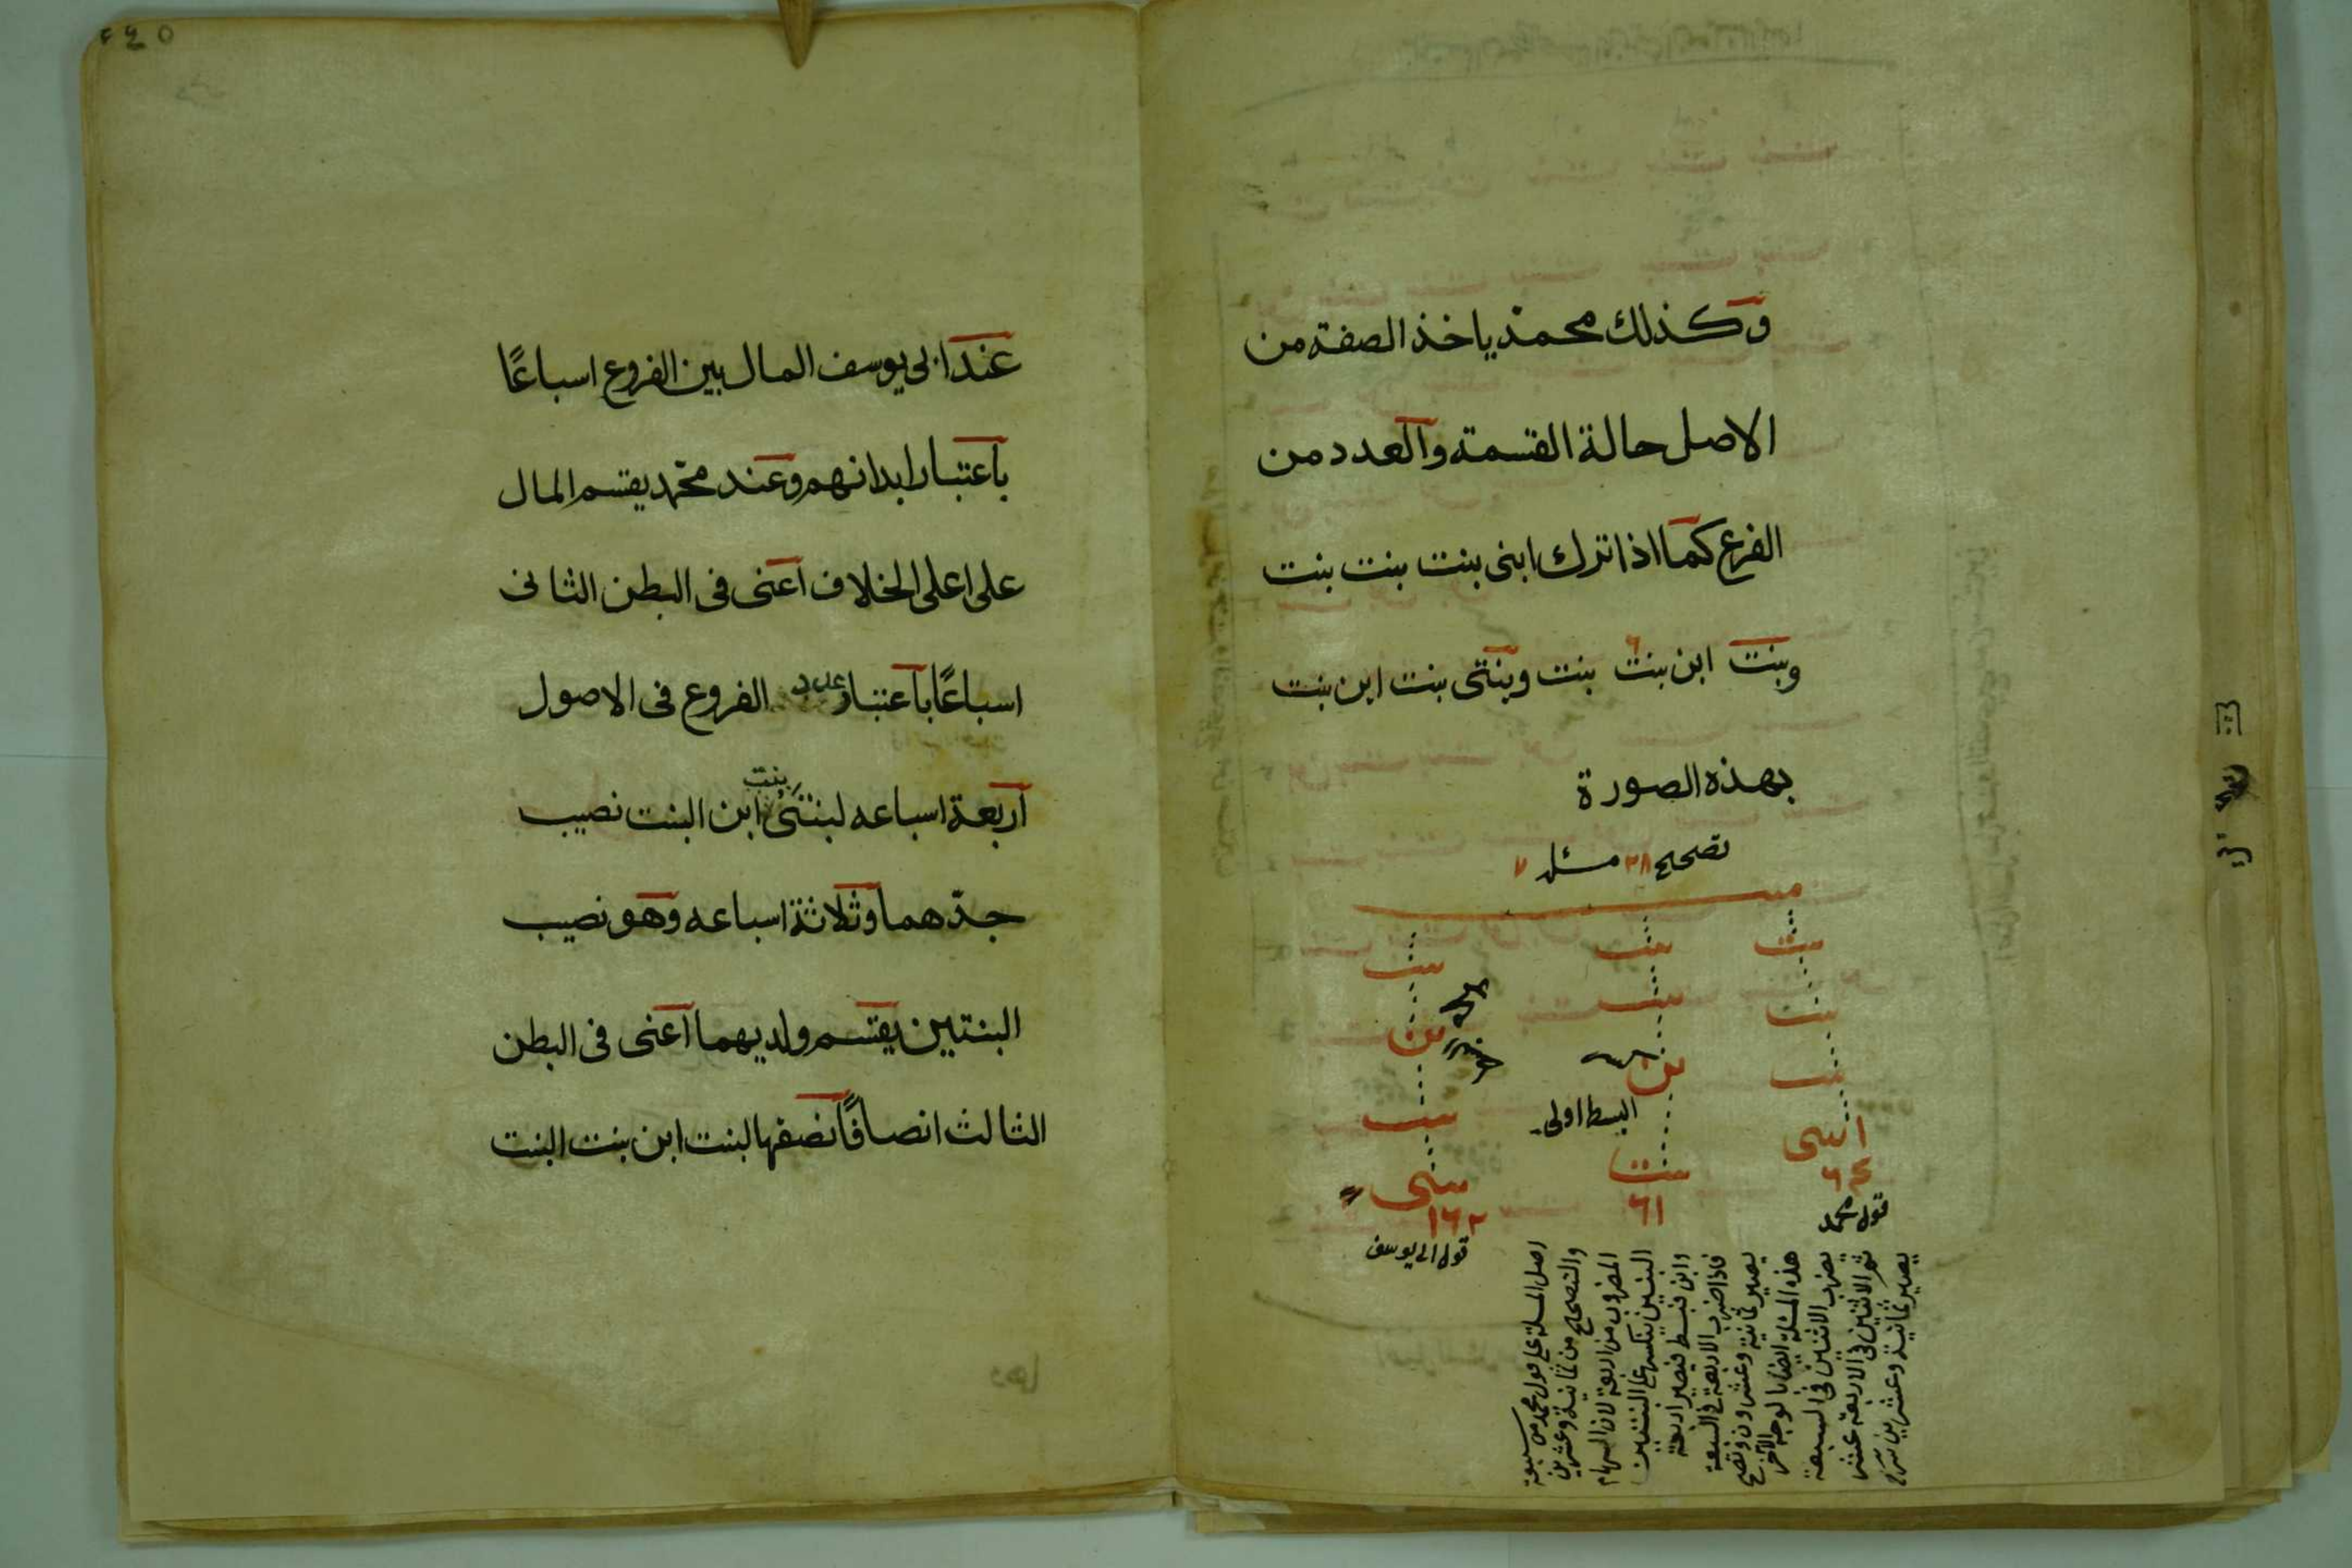 وكذلك محمد ياخذ الصفة من
الاصل حالة القسمة والعدد من
الفرع كما اذا ترك ابنى بنت بنت بنت
وبنت ابن بنت بنت وبنتى بنت ابن بنت
بهذه الصورة
تصحيح ٢٨ مسئله ٧
بنت بنت بنت
بنت بنت ابن
بنت ابن بنت
ابنى بنت بنتى
البسط اولى
قول محمد
قول ابى يوسف
اصل المسئلة على قول محمد من سبعة
والتصحيح من ثمانية وعشرين
المضروب من اربعة لان السهام
البنتين ينكسر على البنتين
وابن فبسط فيصير اربعة
فاذا ضرب الاربعة فى السبعة
يصير ثمانية وعشرون وتصح
هذه المسئلة ايضا بالوجه الآخر
يضرب الاثنين فى السبعة
ثم الاثنين فى الاربعة عشر
يصير ثمانية وعشرين شرح
٢٤٥
عند ابى يوسف المال بين الفروع اسباعًا
باعتبار ابدانهم وعند محمد يقسم المال
على اعلى الخلاف اعنى فى البطن الثانى
اسباعًا باعتبار عدد الفروع فى الاصول
اربعة اسباعه لبنتى بنت ابن البنت نصيب
جدّهما وثلاثة اسباعه وهو نصيب
البنتين يقسم ولديهما اعنى فى البطن
الثالث انصافًا نصفها لبنت ابن بنت البنت